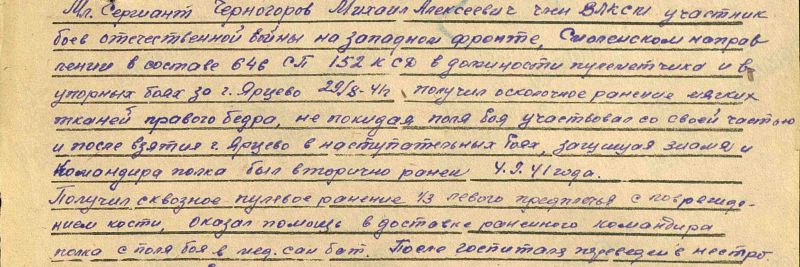 Мл. Сержант Черногоров Михаил Алексеевич член ВЛКСМ участник
боев отечественной войны на западном фронте, Смоленском направ
лении в составе 646 СП 152 КСД в должности пулеметчика и в
упорных боях за г. Ярцево 29/8-41г получил осколочное ранение мягких
тканей правого бедра, не покидая поля боя участвовал со своей частью
и после взятия г. Ярцево в наступательных боях, защищая знамя и
Командира полка был вторично ранен 4.9.41 года.
Получил сквозное пулевое ранение 1/3 левого предплечья с поврежде-
нием кости, Оказал помощь в доставке раненного командира
полка с поля боя в мед. сан бат. После госпиталя переведен в нестро